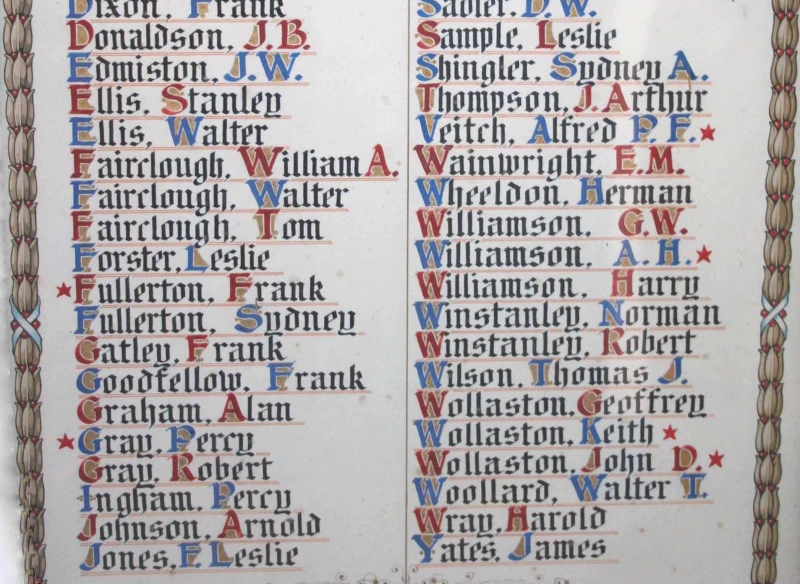 Dixon, Frank
Donaldson, J.B.
Edmiston, J.W.
Ellis, Stanley
Ellis, Walter
Fairclough, William A.
Fairclough, Walter
Fairclough, Tom
Forster, Leslie
★Fullerton, Frank
Fullerton, Sydney
Gatley, Frank
Goodfellow, Frank
Graham, Alan
★Gray, Percy
Gray, Robert
Ingham, Percy
Johnson, Arnold
Jones, F. Leslie
Sadler, D.W.
Sample, Leslie
Shingler, Sydney A.
Thompson, J. Arthur
Veitch, Alfred P. F.★
Wainwright, E.M.
Wheeldon, Herman
Williamson, G.W.
Williamson, A.H.★
Williamson, Harry
Winstanley, Norman
Winstanley, Robert
Wilson, Thomas J.
Wollaston, Geoffrey
Wollaston, Keith ★
Wollaston, John D.★
Woollard, Walter T.
Wray, Harold
Yates, James